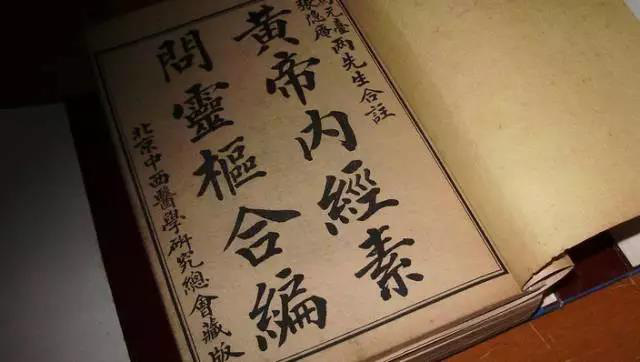 元臺
張隱庵
兩先生合註
黃帝內經素
問靈樞合編
北京中西醫學研究總會藏版